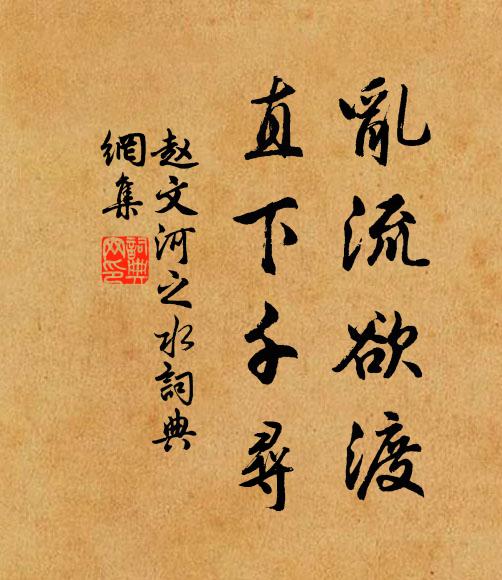 亂流欲渡
直下千尋
赵文河之水詞典
網集
詞典
网印